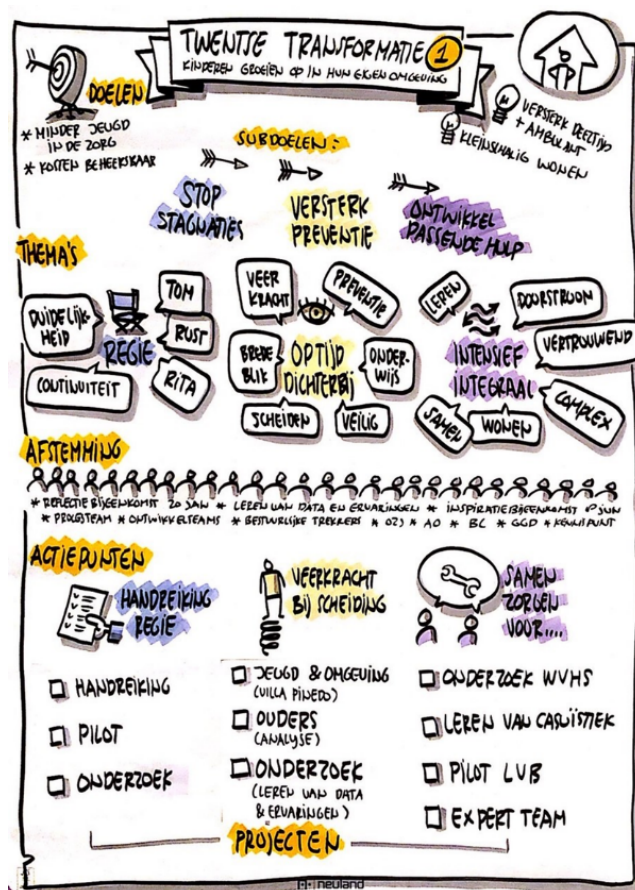 TWENTSE TRANSFORMATIE 1
KINDEREN GROEIEN OP IN HUN EIGEN OMGEVING
DOELEN
* MINDER JEUGD
IN DE ZORG
* KOSTEN BEHEERSBAAR
VERSTERK DEELTIJD
+ AMBULANT
KLEINSCHALIG WONEN
SUBDOELEN:
STOP
STAGNATIES
VERSTERK
PREVENTIE
ONTWIKKEL
PASSENDE HULP
THEMA'S
DUIDELIJK-
HEID
TOM
RUST
REGIE
CONTINUITEIT
RITA
VEER
KRACHT
PREVENTIE
BREDE
BLIK
OP TIJD
DICHTERBIJ
ONDER-
WIJS
SCHEIDEN
VEILIG
LEREN
DOORSTROOM
VERTROUWEND
INTENSIEF
INTEGRAAL
COMPLEX
SAMEN
WONEN
AFSTEMMING
* REFLECTIE BIJEENKOMST 20 JAN * LEREN VAN DATA EN ERVARINGEN * INSPIRATIEBIJEENKOMST JUN
* PROCESTEAM * ONTWIKKELTEAMS * BESTUURLIJKE TREKKERS * OZJ * AO * BC * GGD * KENNISPUNT
ACTIEPUNTEN
HANDREIKING
REGIE
HANDREIKING
PILOT
ONDERZOEK
VEERKRACHT
BIJ SCHEIDING
JEUGD & OMGEVING
(VILLA PINEDO)
OUDERS
(ANALYSE)
ONDERZOEK
(LEREN VAN DATA
& ERVARINGEN)
SAMEN
ZORGEN
VOOR....
ONDERZOEK WVHS
LEREN VAN CASUÏSTIEK
PILOT LVB
EXPERT TEAM
PROJECTEN
neuland